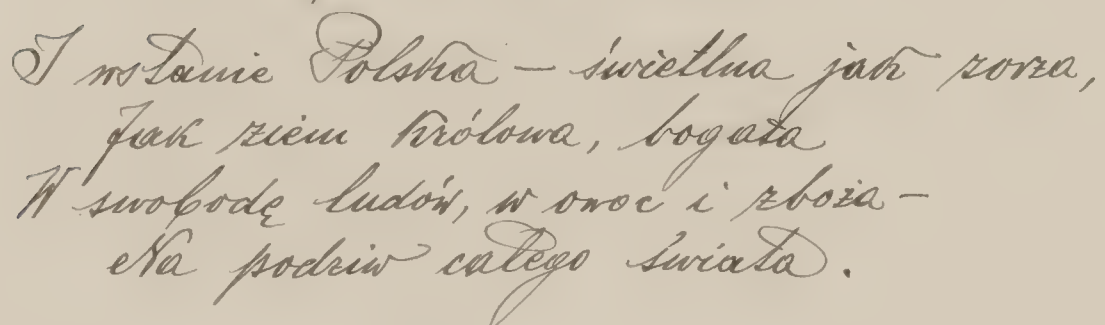 I wstanie Polska – świetlna jak zorza,
Jak ziem królowa, bogata
W swobodę ludów, w owoc i zboża –
Na podziw całego świata.